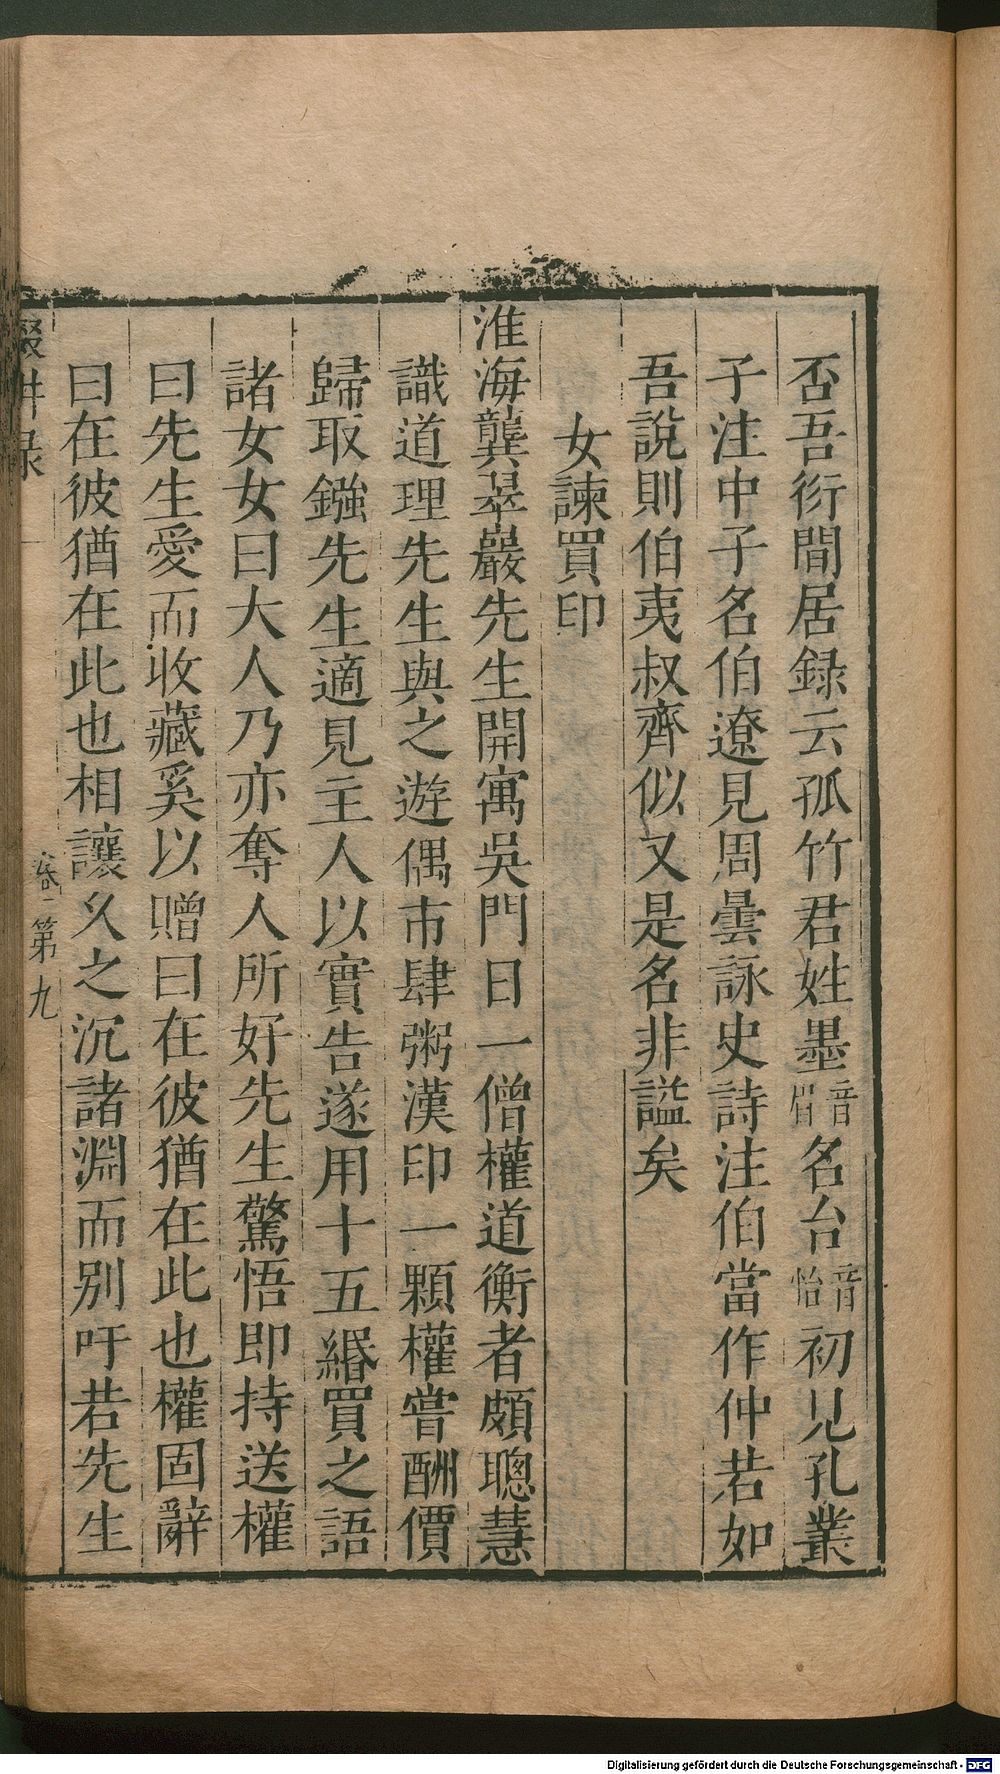 否吾衍閒居録云孤竹君姓墨音眉名台音怡初見孔叢
子注中子名伯遼見周曇詠史詩注伯當作仲若如
吾說則伯夷叔齊似又是名非謚矣
女諫買印
淮海龔翠巖先生開寓吳門日一僧權道衡者頗聰慧
識道理先生與之遊偶市肆粥漢印一顆權嘗酬價
歸取鏹先生適見主人以實告遂用十五緡買之語
諸女女曰大人乃亦奪人所好先生驚悟即持送權
曰先生愛而收藏奚以贈曰在彼猶在此也權固辭
曰在彼猶在此也相讓久之沉諸淵而別吁若先生
輟畊录
卷一 第九
Digitalisierung gefördert durch die Deutsche Forschungsgemeinschaft - DFG